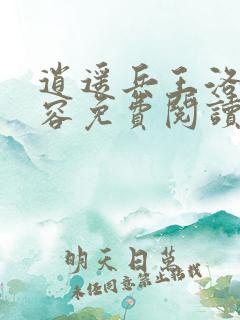 逍遥兵王洛
容免費閱讀
明天日萬
未经同意禁止转载